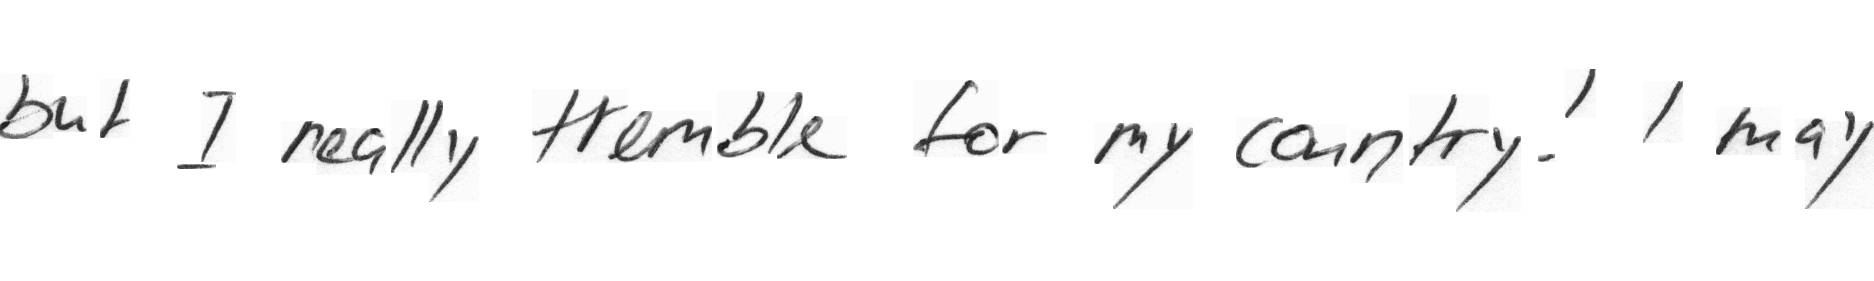 but I really tremble for my country.' ' may